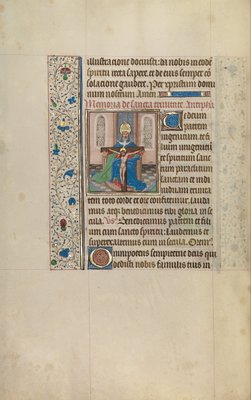 illustracione docuisti: da nobis in eodē
spiritu recta sapere. et de eius semper cō
solacione gaudere. Per xpristum domi
num nostrum Amen
Memoria de sancta trinitate. Antiph̄a
Te deum
patrem
ingenitum. te fi
lium unigenitū
et spiritum sanc
tum paraclitum
sanctam et indi
uiduam trinita
tem toto corde et ore confitemur. lauda
mus atq; benedicimus tibi gloria in se
cula. Vs̄. Benedicamus patrem et fili
um cum sancto spiritu: Laudemus et
superexaltemus eum in secula. Orem⁹.
Omnipotens sempiterne deus qui
dedisti nobis famulis tuis in